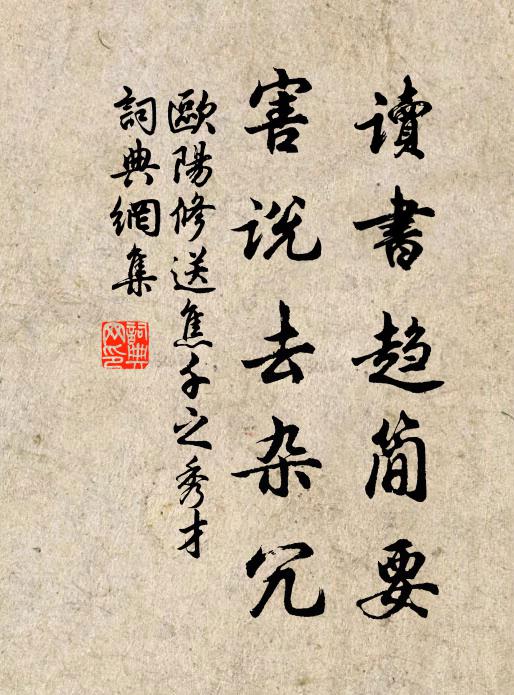 讀書趨简要
害说去杂冗
歐陽修送焦千之秀才
詞典網集
詞典网印